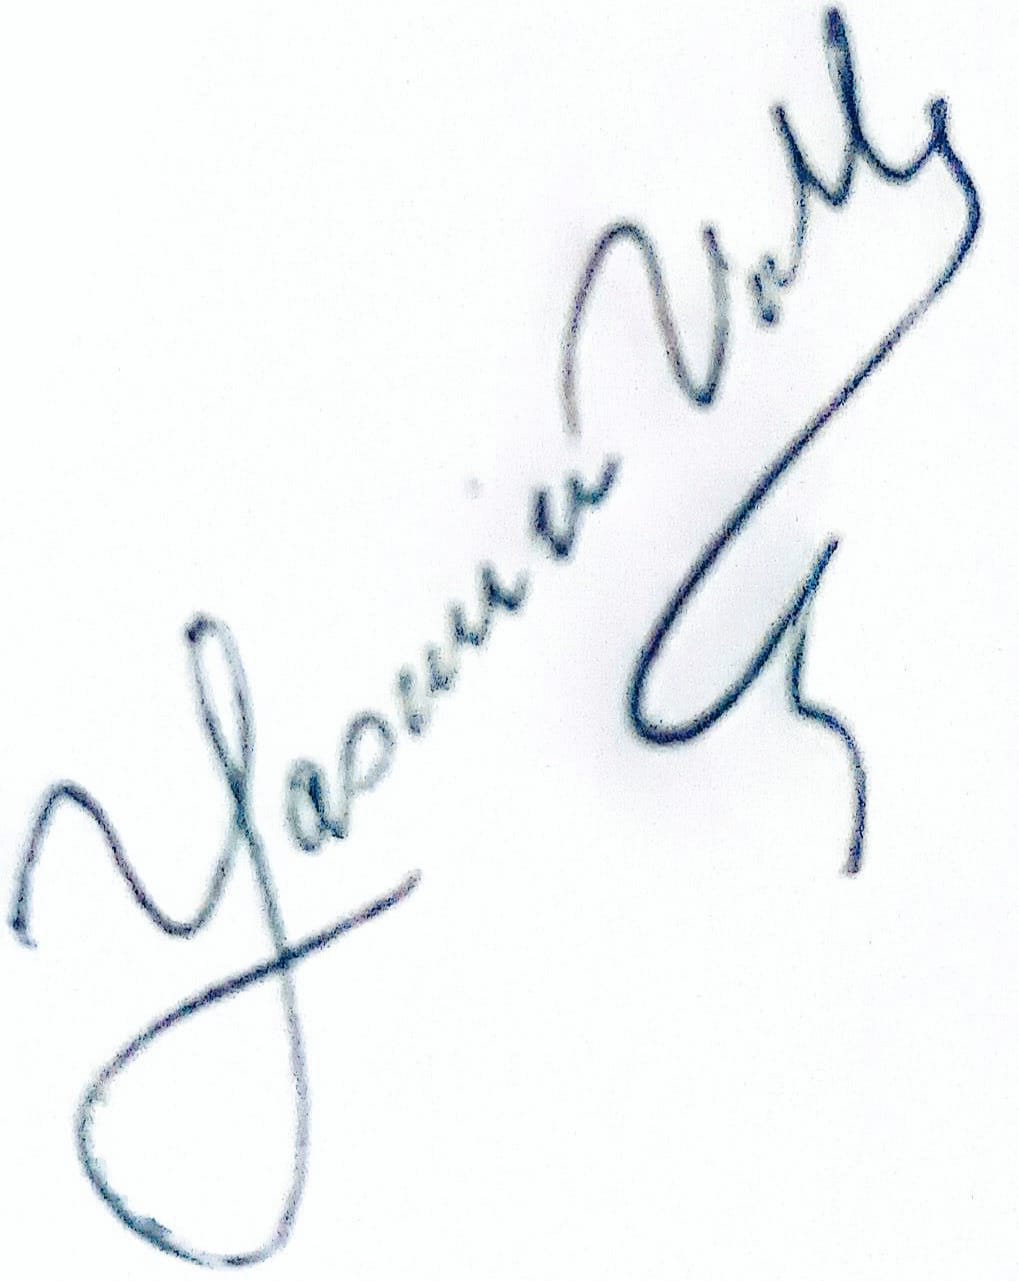 Yasmin Valls